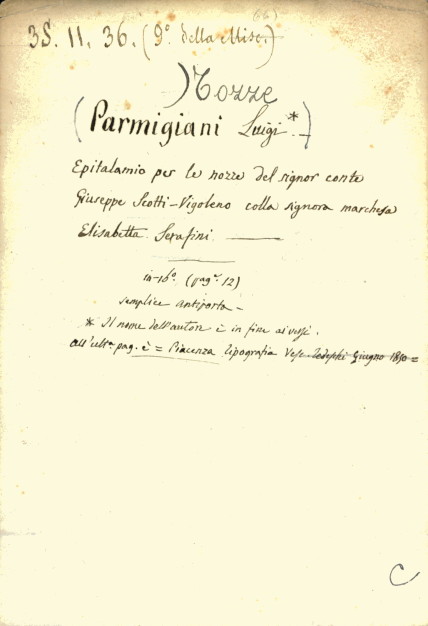 (66)
35. 11. 36. (9º. della Misc.)
Nozze
(Parmigiani Luigi.*)
Epitalamio per le nozze del signor conte
Giuseppe Scotti-Vigoleno colla signora marchesa
Elisabetta Serafini
in-16º. (pagª. 12)
semplice antiporta -
* Il nome dell'autore è in fine ai versi.
all'ultª. pag. è = Piacenza Tipografia Vesc. Tedeschi Giugno 1850 =
C